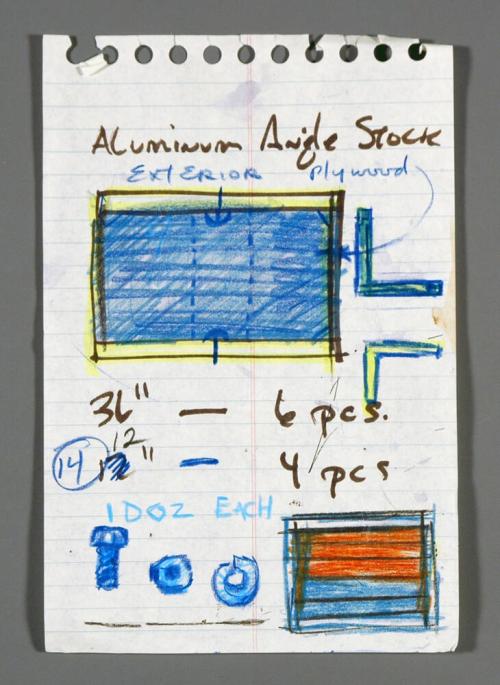 Aluminum Angle Stock
EXTERIOR plywood
36" — 6 pcs.
12
14 " — 4 pcs
1 DOZ EACH